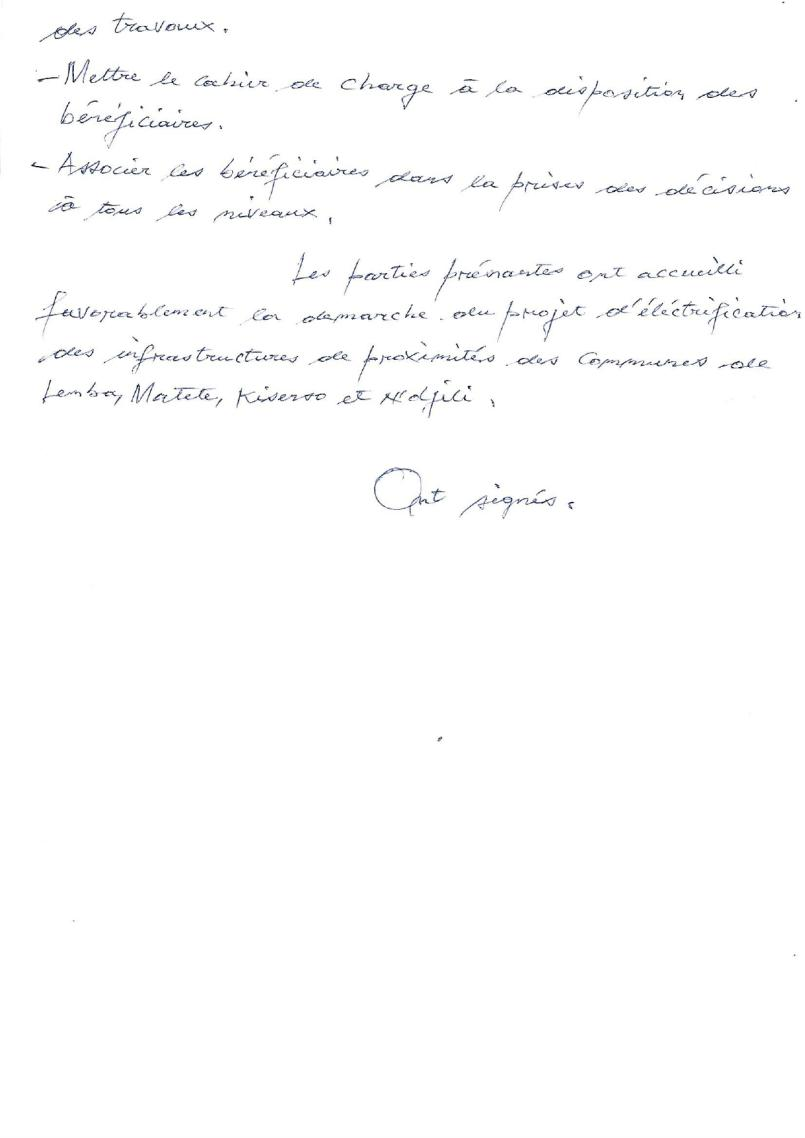 des travaux.
- Mettre le cahier de charge à la disposition des
bénéficiaires.
- Associer les bénéficiaires dans la prises des décisions
à tous les niveaux.
Les parties prénantes ont accueilli
favorablement la demarche du projet d'éléctrification
des infrastructures de proximités des Communes de
Lemba, Matete, Kisenso et N'djili.
Ont signés.